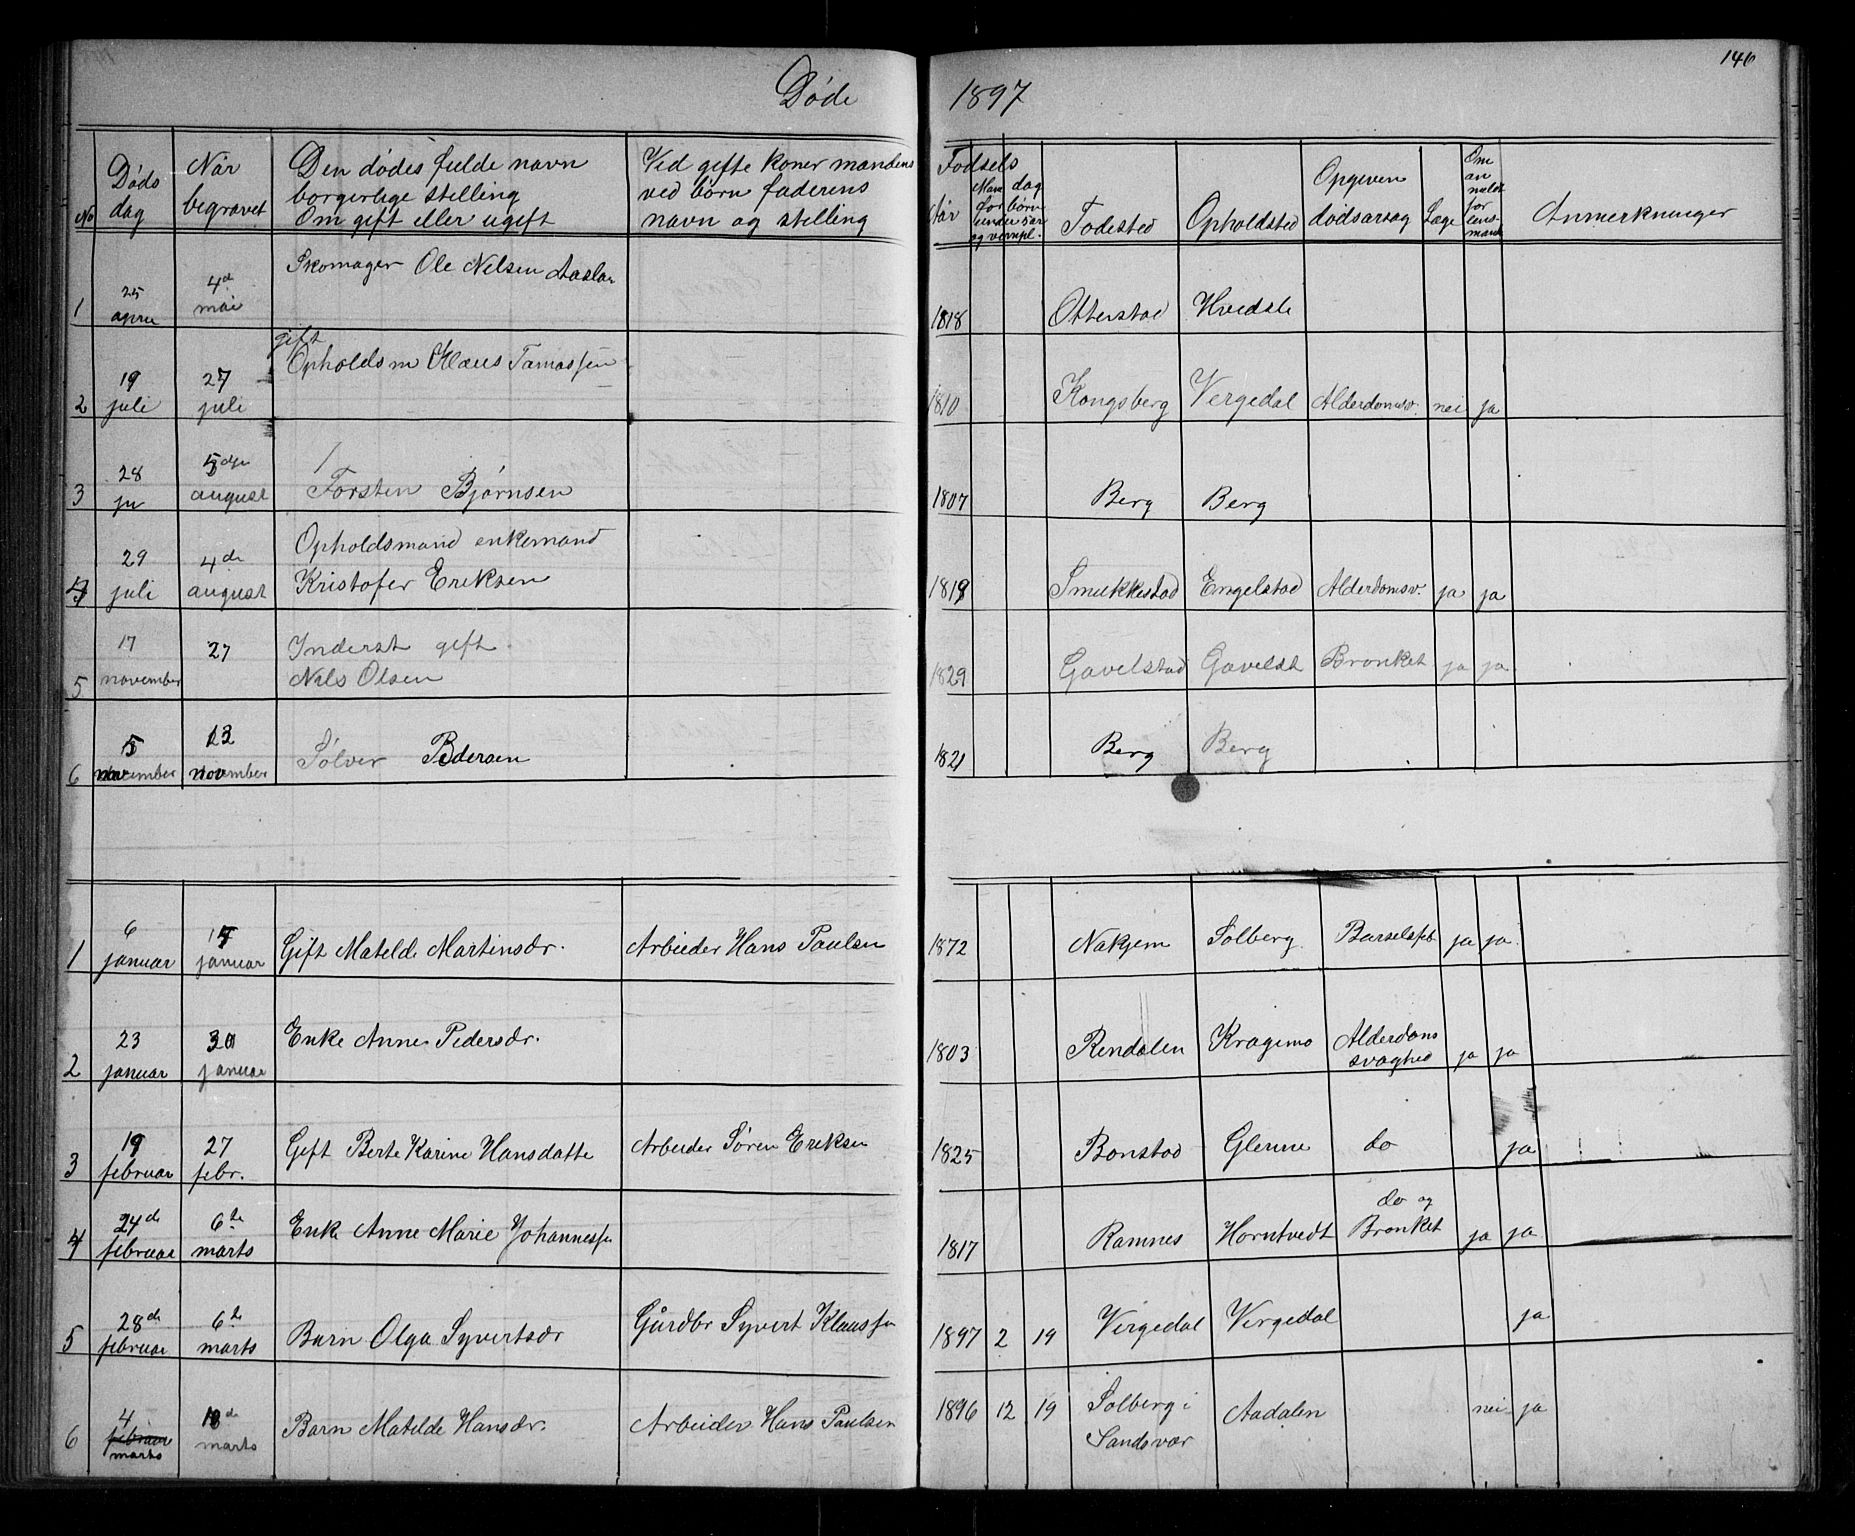 146
Døde 1897
No
Døds dag
Når begravet
Den dødes fulde navn
borgerlige stelling
Om gift eller ugift
Ved gifte koner mandens
ved børn faderens
navn og stelling
Fødsels
år
dag
for børn
Fødested
Opholdsted
Opgiven
dødsårsag
Læge
Om an meldt for lens mand
Anmerkninger
1 25 april 4de mai Skomager Ole Nelsen 1818 Otterstad Hvedsle
gift
2 19 juli 27 juli Opholdsm Klaus Tamassen 1810 Kongsberg Vergedal Alderdomsv. nei ja
3 28 ju 5 august Torsten Bjørnsen 1807 Berg Berg
4 29 juli 4de august Opholdsmand enkemand
Kristofer Ereksen 1819 Smukkestad Engelstad Alderdomsv. ja ja
5 17 november 27 Inderst gift
Nils Olsen 1829 Gavelstad Gavelst Bronket ja ja
6 5 november 13 november Sølver Pedersen 1821 Berg Berg
1 6 januar 15 januar Gift Matelde Martinsdr. Arbeider Hans Paulsen 1872 Nakjem Solberg Barselsfeb ja ja
2 23 januar 30 januar Enke Anne Pedersdr. 1803 Rendalen Kragemo Alderdoms
svaghed ja ja
3 19 februar 27 febr. Gift Berte Karine Hansdatte Arbeider Søren Ereksen 1825 Bonstad Glenne do ja
4 24de februar 6te marts Enke Anne Marie Johannessen 1817 Ramnes Horntvedt do og
Bronket ja ja
5 28de februar 6te marts Barn Olga Syvertsdr Gårdbr Syvert Klaussen 1897 2 19 Vergedal Vergedal ja
6 4 februar marts 18de marts Barn Matilde Hansdr. Arbeider Hans Paulsen 1896 12 19 Solberg i
Sandsvær Aadalen nei ja